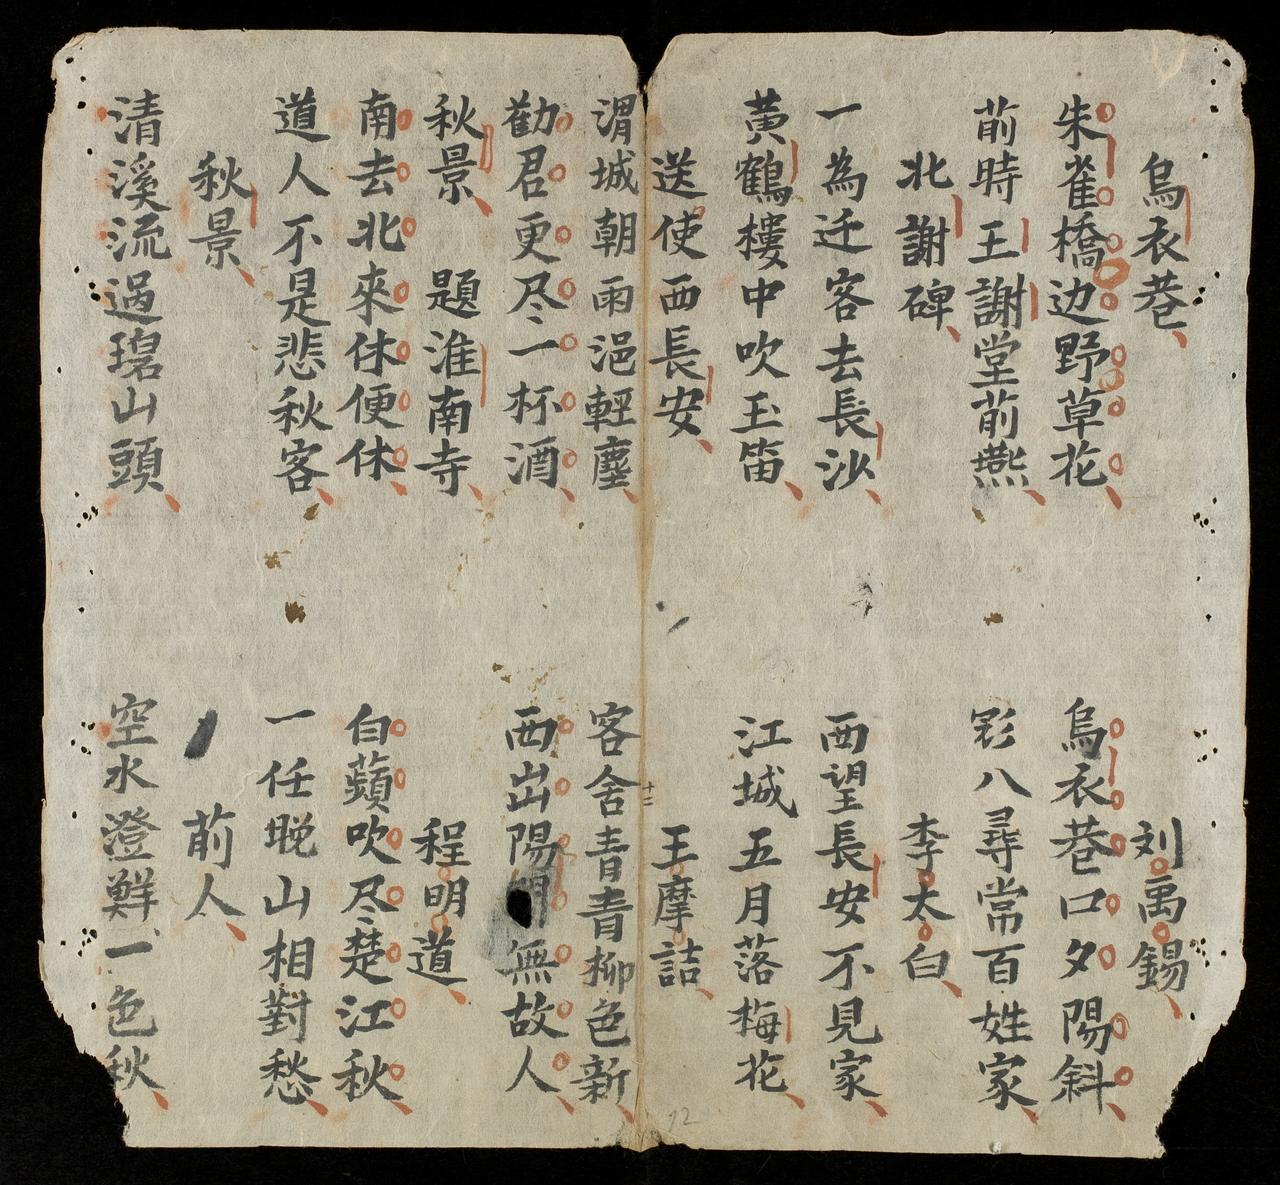 烏衣巷 刘禹錫
朱雀橋边野草花 烏衣巷口夕陽斜
前時王謝堂前燕 彩八尋常百姓家
北謝碑 李太白
一為迁客去長沙 西望長安不見家
黃鶴樓中吹玉笛 江城五月落梅花
送使西長安 王摩詰
渭城朝雨浥輕塵 客舍青青柳色新
勸君更尽一杯酒 西出陽無故人
秋景 題淮南寺 程明道
南去北來休便休 白蘋吹尽楚江秋
道人不是悲秋客 一任晚山相對愁
秋景 前人
清溪流過碧山頭 空水澄鮮一色秋
十二
12